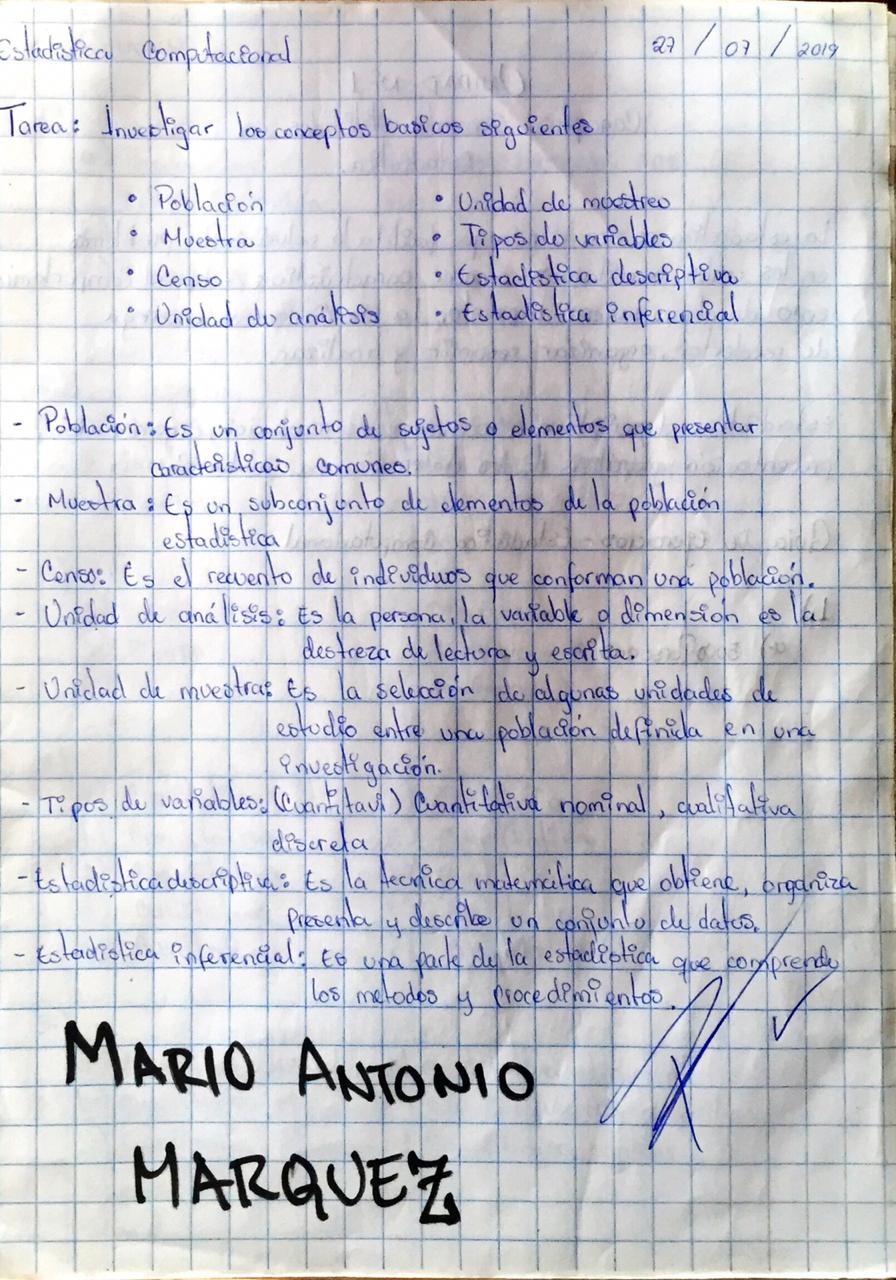 Estadistica Computacional 27 / 07 / 2019
Tarea: Investigar los conceptos basicos siguientes
• Población • Unidad de muestreo
• Muestra • Tipos de variables
• Censo • Estadistica descriptiva
• Unidad de análisis • Estadistica inferencial
- Población: Es un conjunto de sujetos o elementos que presentar
caracteristicas comunes.
- Muestra: Es un subconjunto de elementos de la población
estadistica
- Censo: Es el recuento de individuos que conforman una población.
- Unidad de análisis: Es la persona, la variable o dimensión es la
destreza de lectura y escrita.
- Unidad de muestra: Es la selección de algunas unidades de
estudio entre una población definida en una
investigación.
- Tipos de variables: (Cuantitavi) Cuantitativa nominal, cualitativa
discreta
- Estadistica descriptiva: Es la tecnica matemática que obtiene, organiza
presenta y describe un conjunto de datos.
- Estadistica inferencial: Es una parte de la estadistica que comprende
los metodos y procedimientos.
MARIO ANTONIO
MARQUEZ